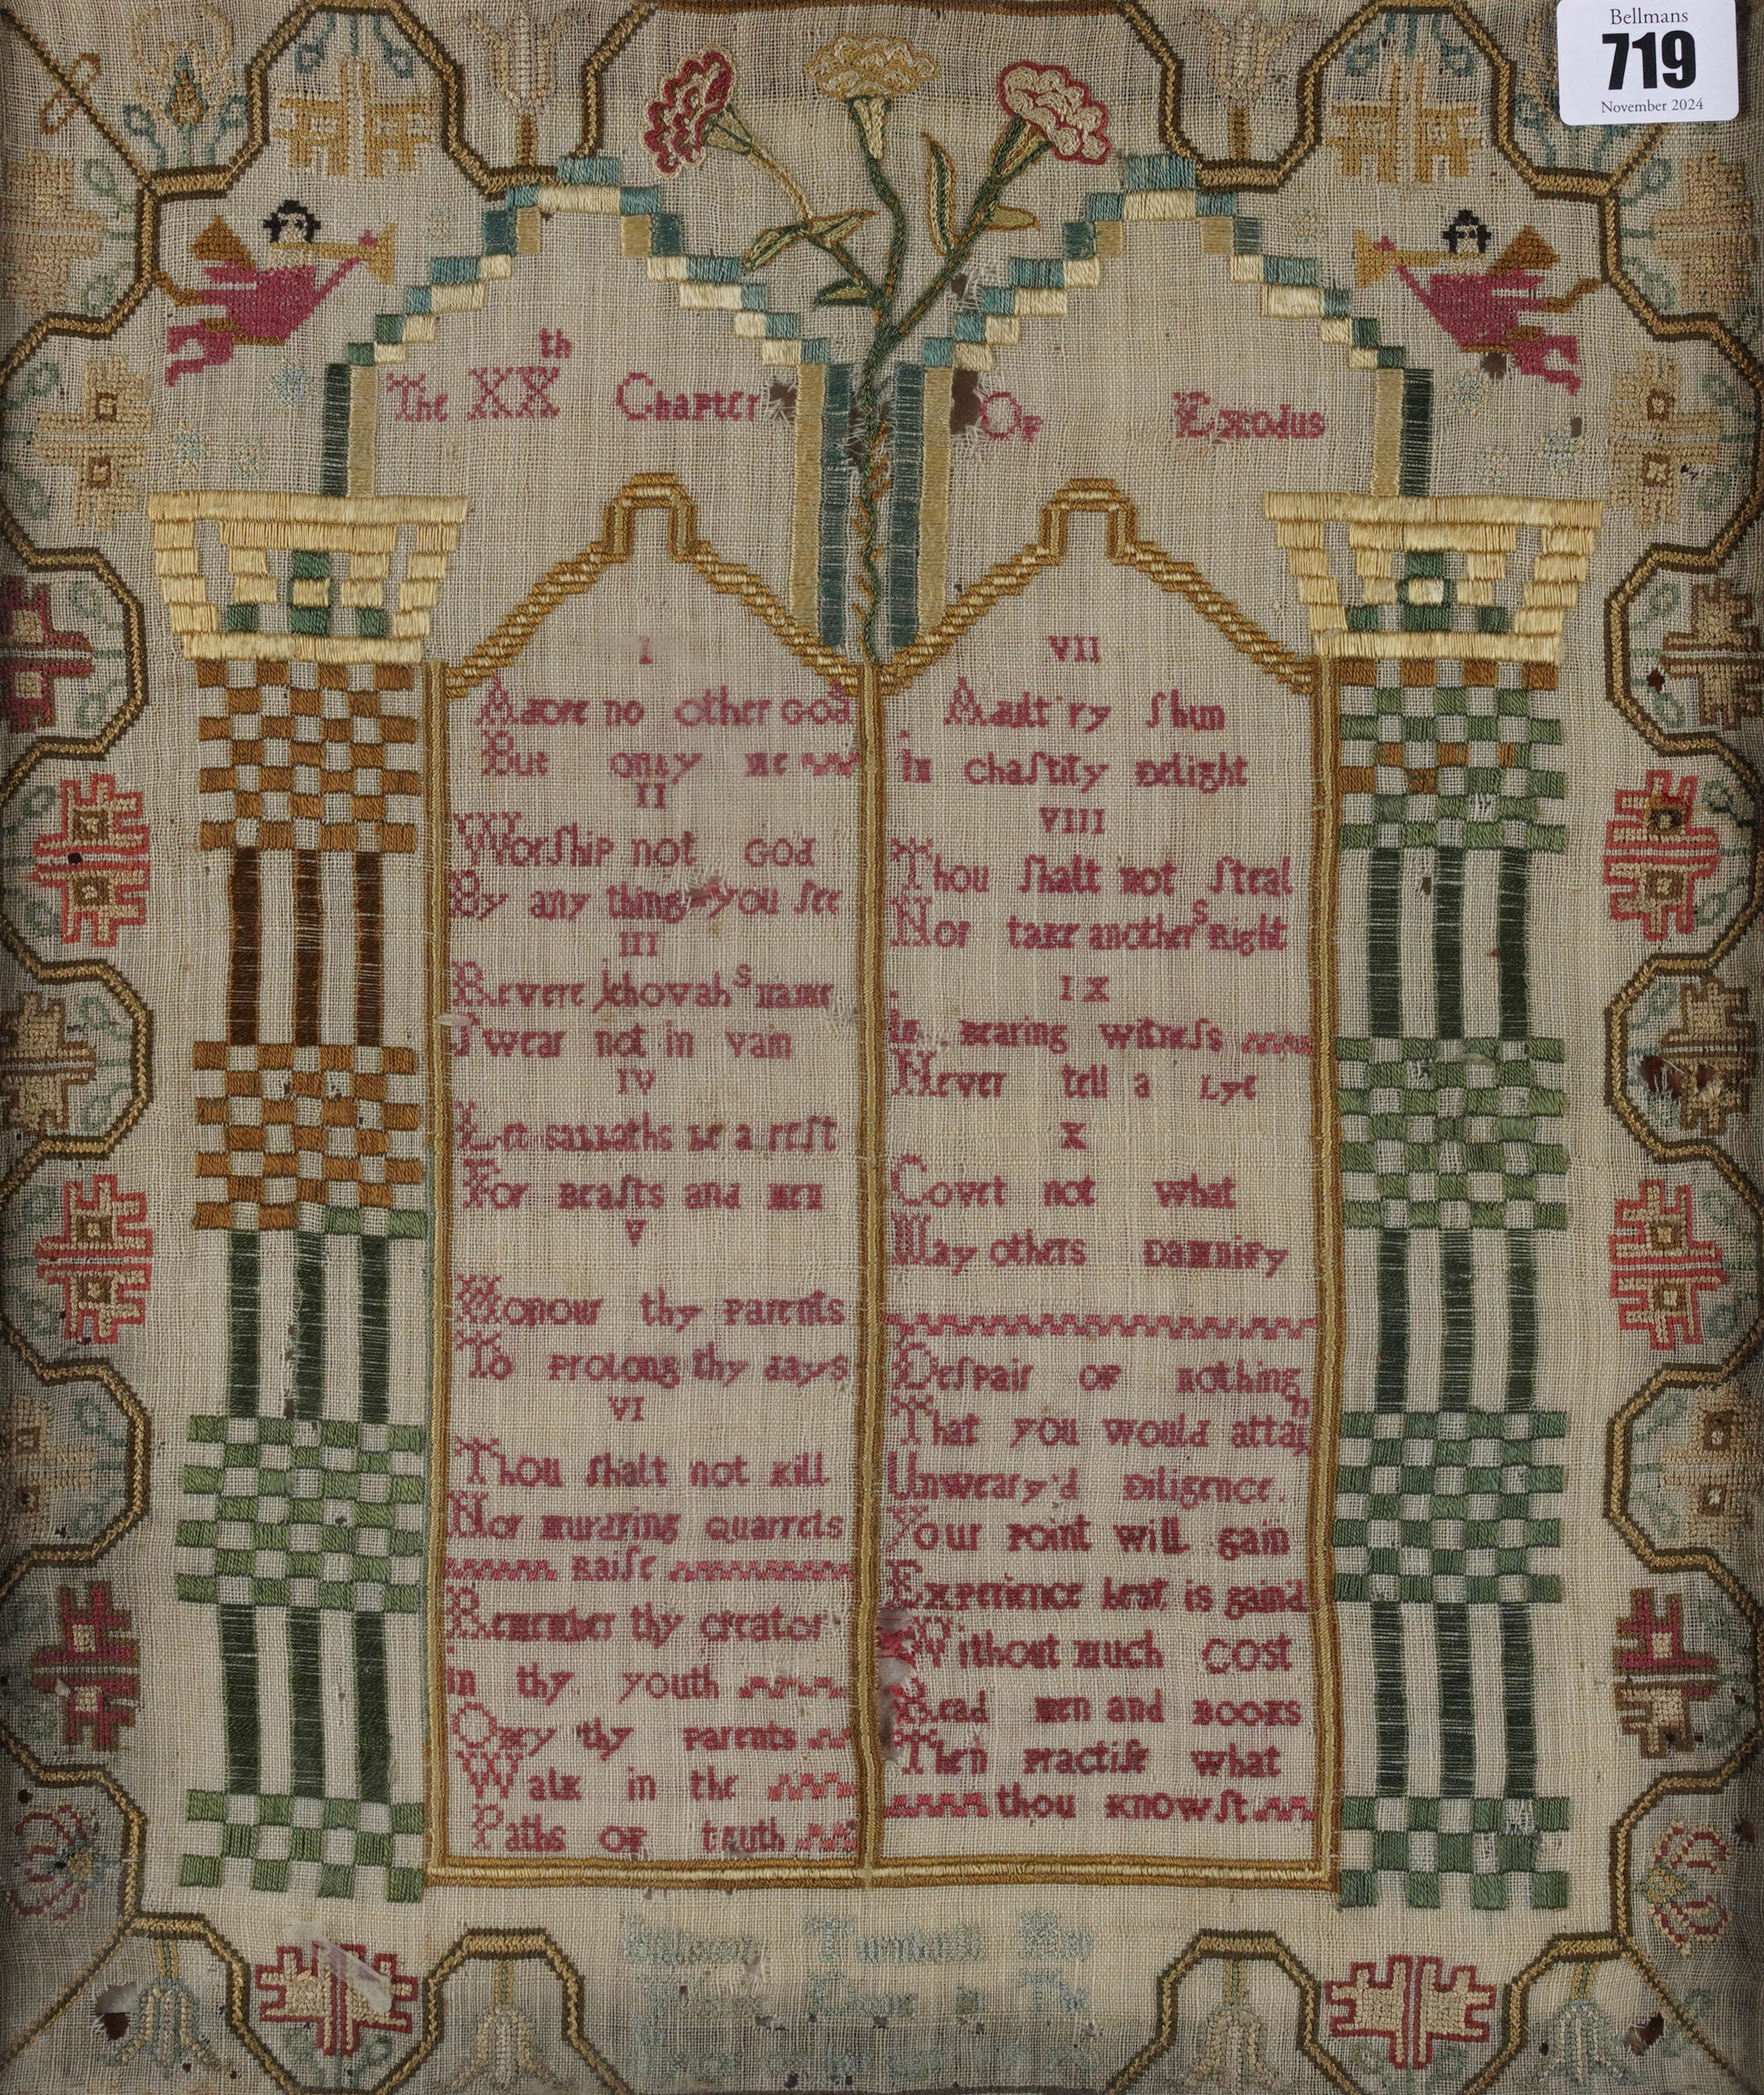 Bellmans
719
November 2024
th
The XX Chapter
Of Exodus
I
Adore no other God
But only me
II
Worſhip not God
By any thing you ſee
III
Revere Jehovahs name
Swear not in vain
IV
Let sabbaths be a reſt
For Beaſts and men
V
Honour thy Parents
To Prolong thy days
VI
Thou ſhalt not kill
Nor murdring quarrels
Raiſe
Remember thy creator
in thy youth
Obey thy Parents
Walk in the
Paths of truth
VII
Adult'ry ſhun
in chaſtity Delight
VIII
Thou ſhalt not ſteal
Nor take anothers Right
IX
In Bearing witneſs
Never tell a Lye
X
Covet not what
May others Damnify
Deſpair of nothing
That you would attain
Unweary'd Diligence.
Your Point will gain
Experience best is gaind
Without much cost
Read men and Books
Then Practiſe what
thou knowſt
Turnbull Her
Work Done in The